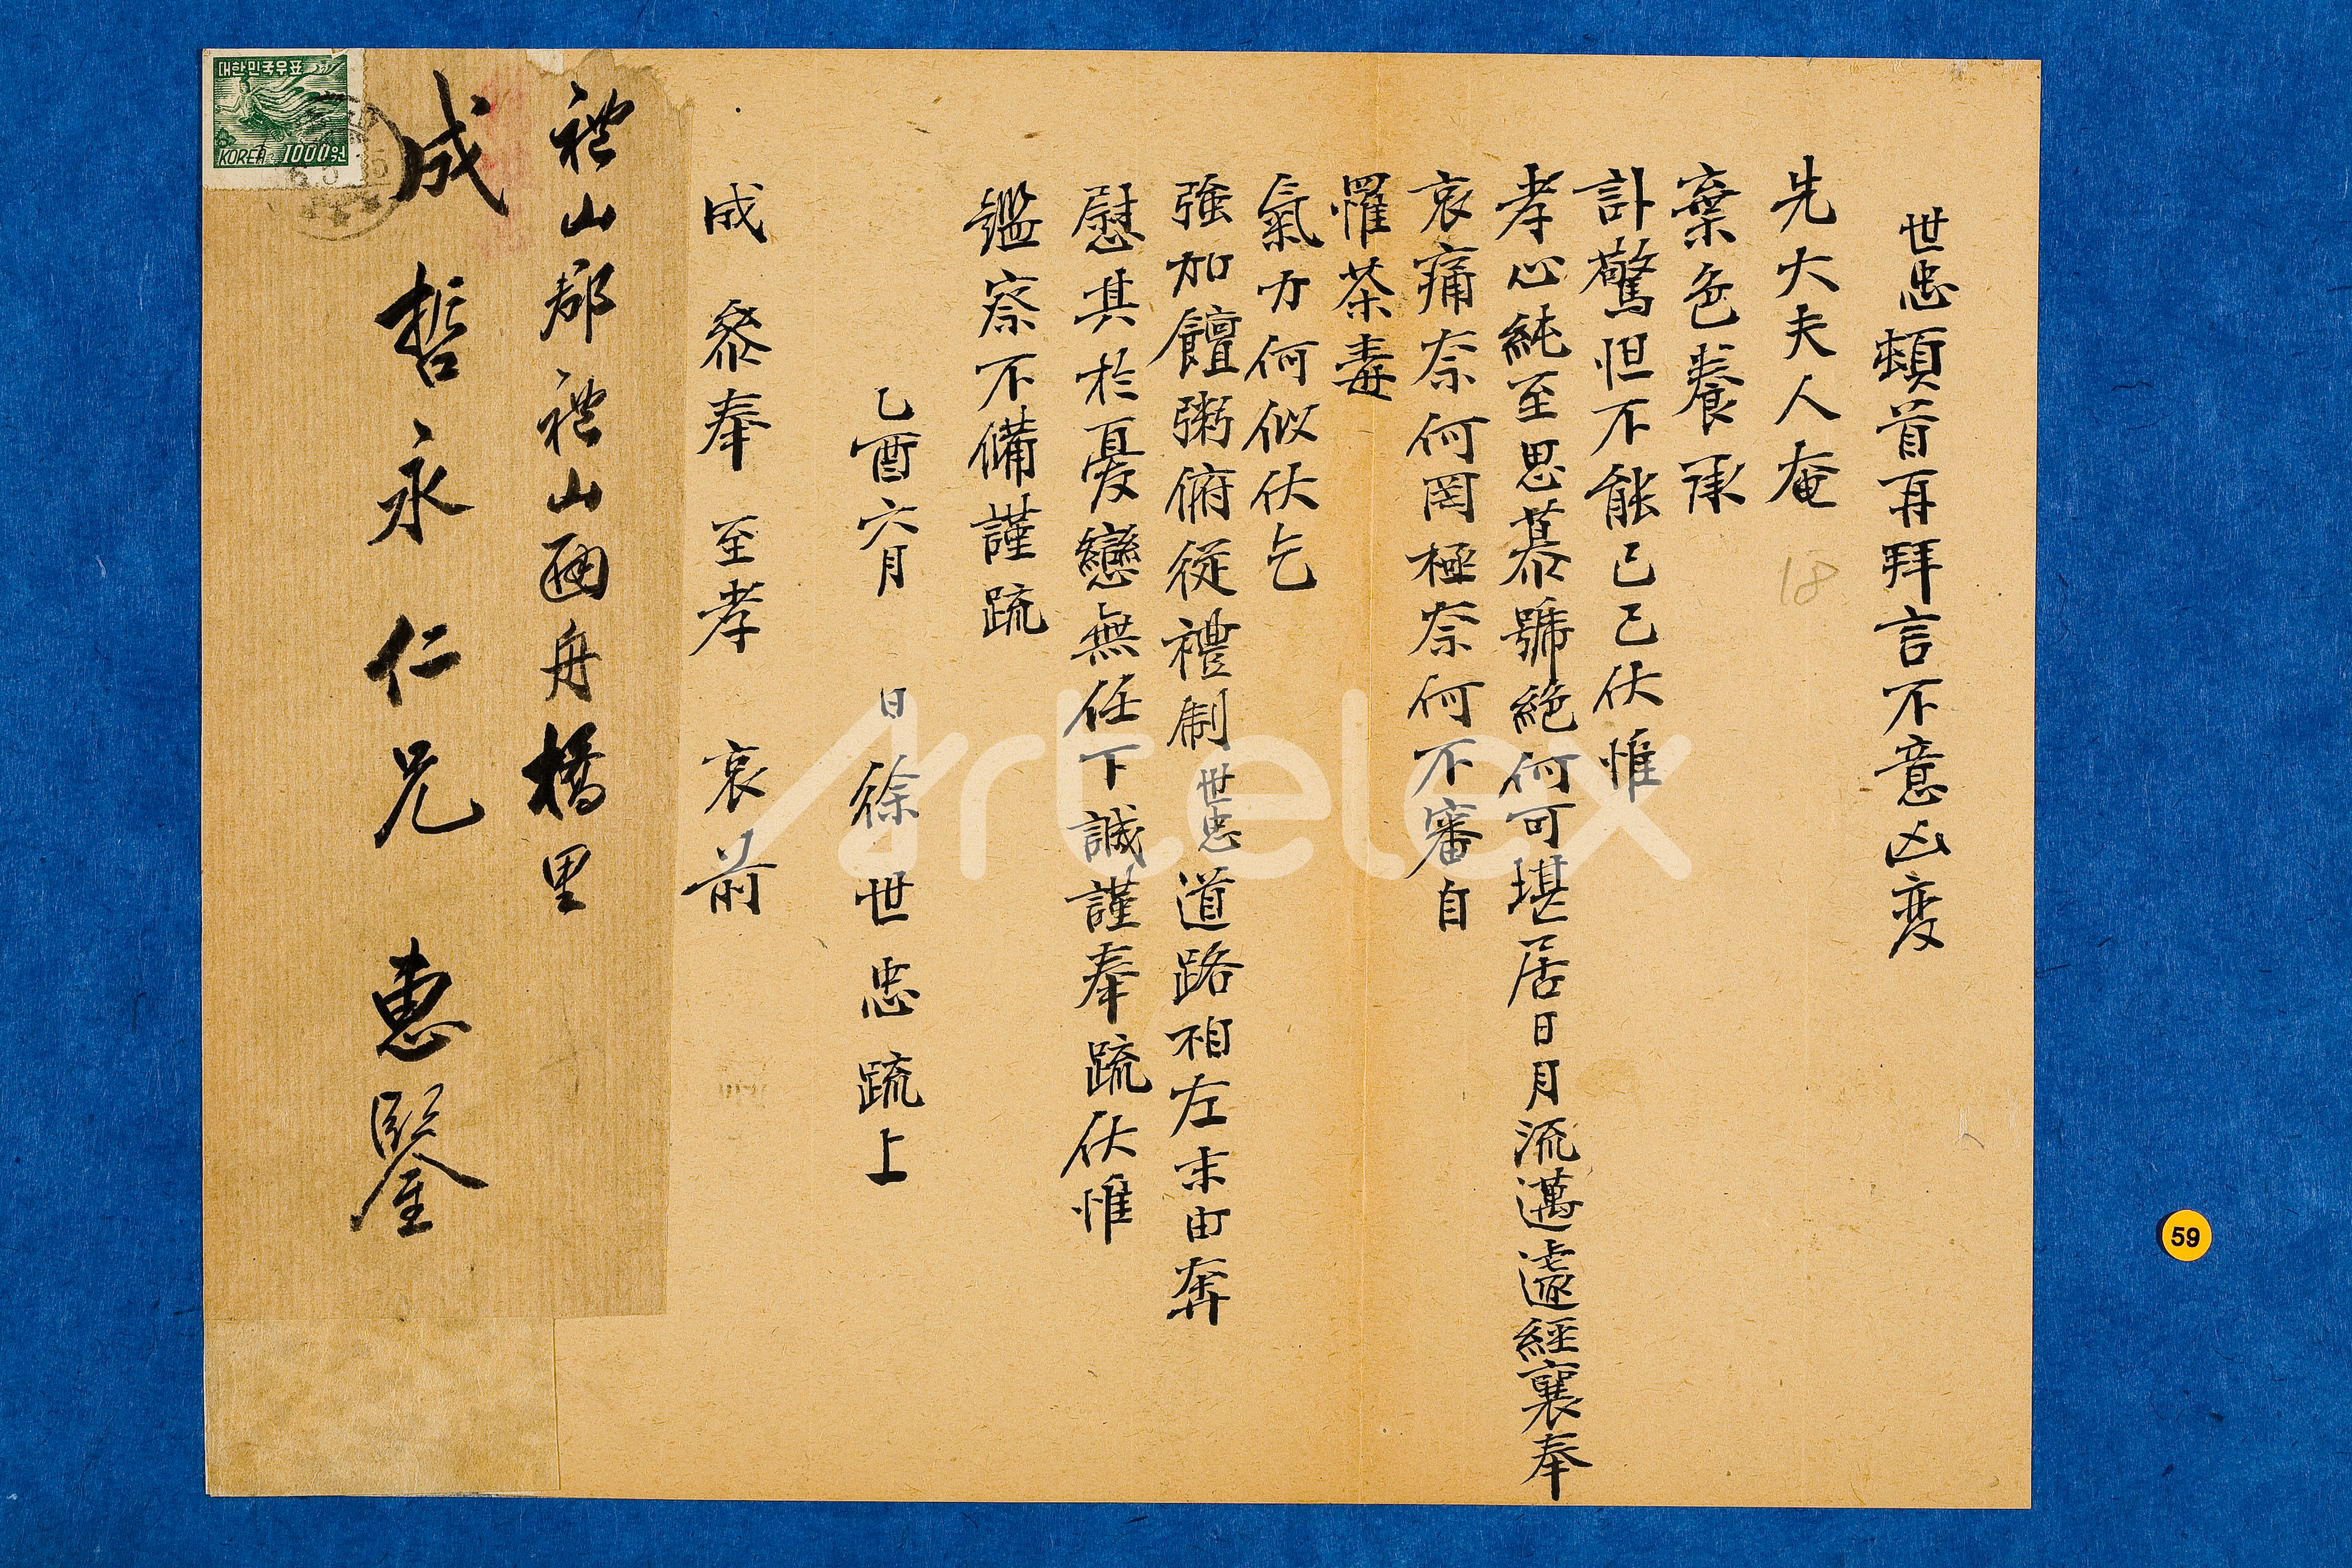 世忠頓首再拜言不意凶変
先大夫人奄
棄色養承
訃驚怛不能已已伏惟
孝心純至思慕號絶何可堪居日月流邁遽經襄奉
哀痛奈何罔極奈何不審自
罹荼毒
氣力何似伏乞
強加饘粥俯從禮制世忠道路相左末由奔
慰其於憂戀無任下誠謹奉疏伏惟
鑑察不備謹疏
乙酉六月 日徐世忠疏上
成叅奉 至孝 哀前
禮山郡禮山面舟橋里
成哲永仁兄 惠鑒
대한민국우표
KOREA 1000원
18
59
Artelex